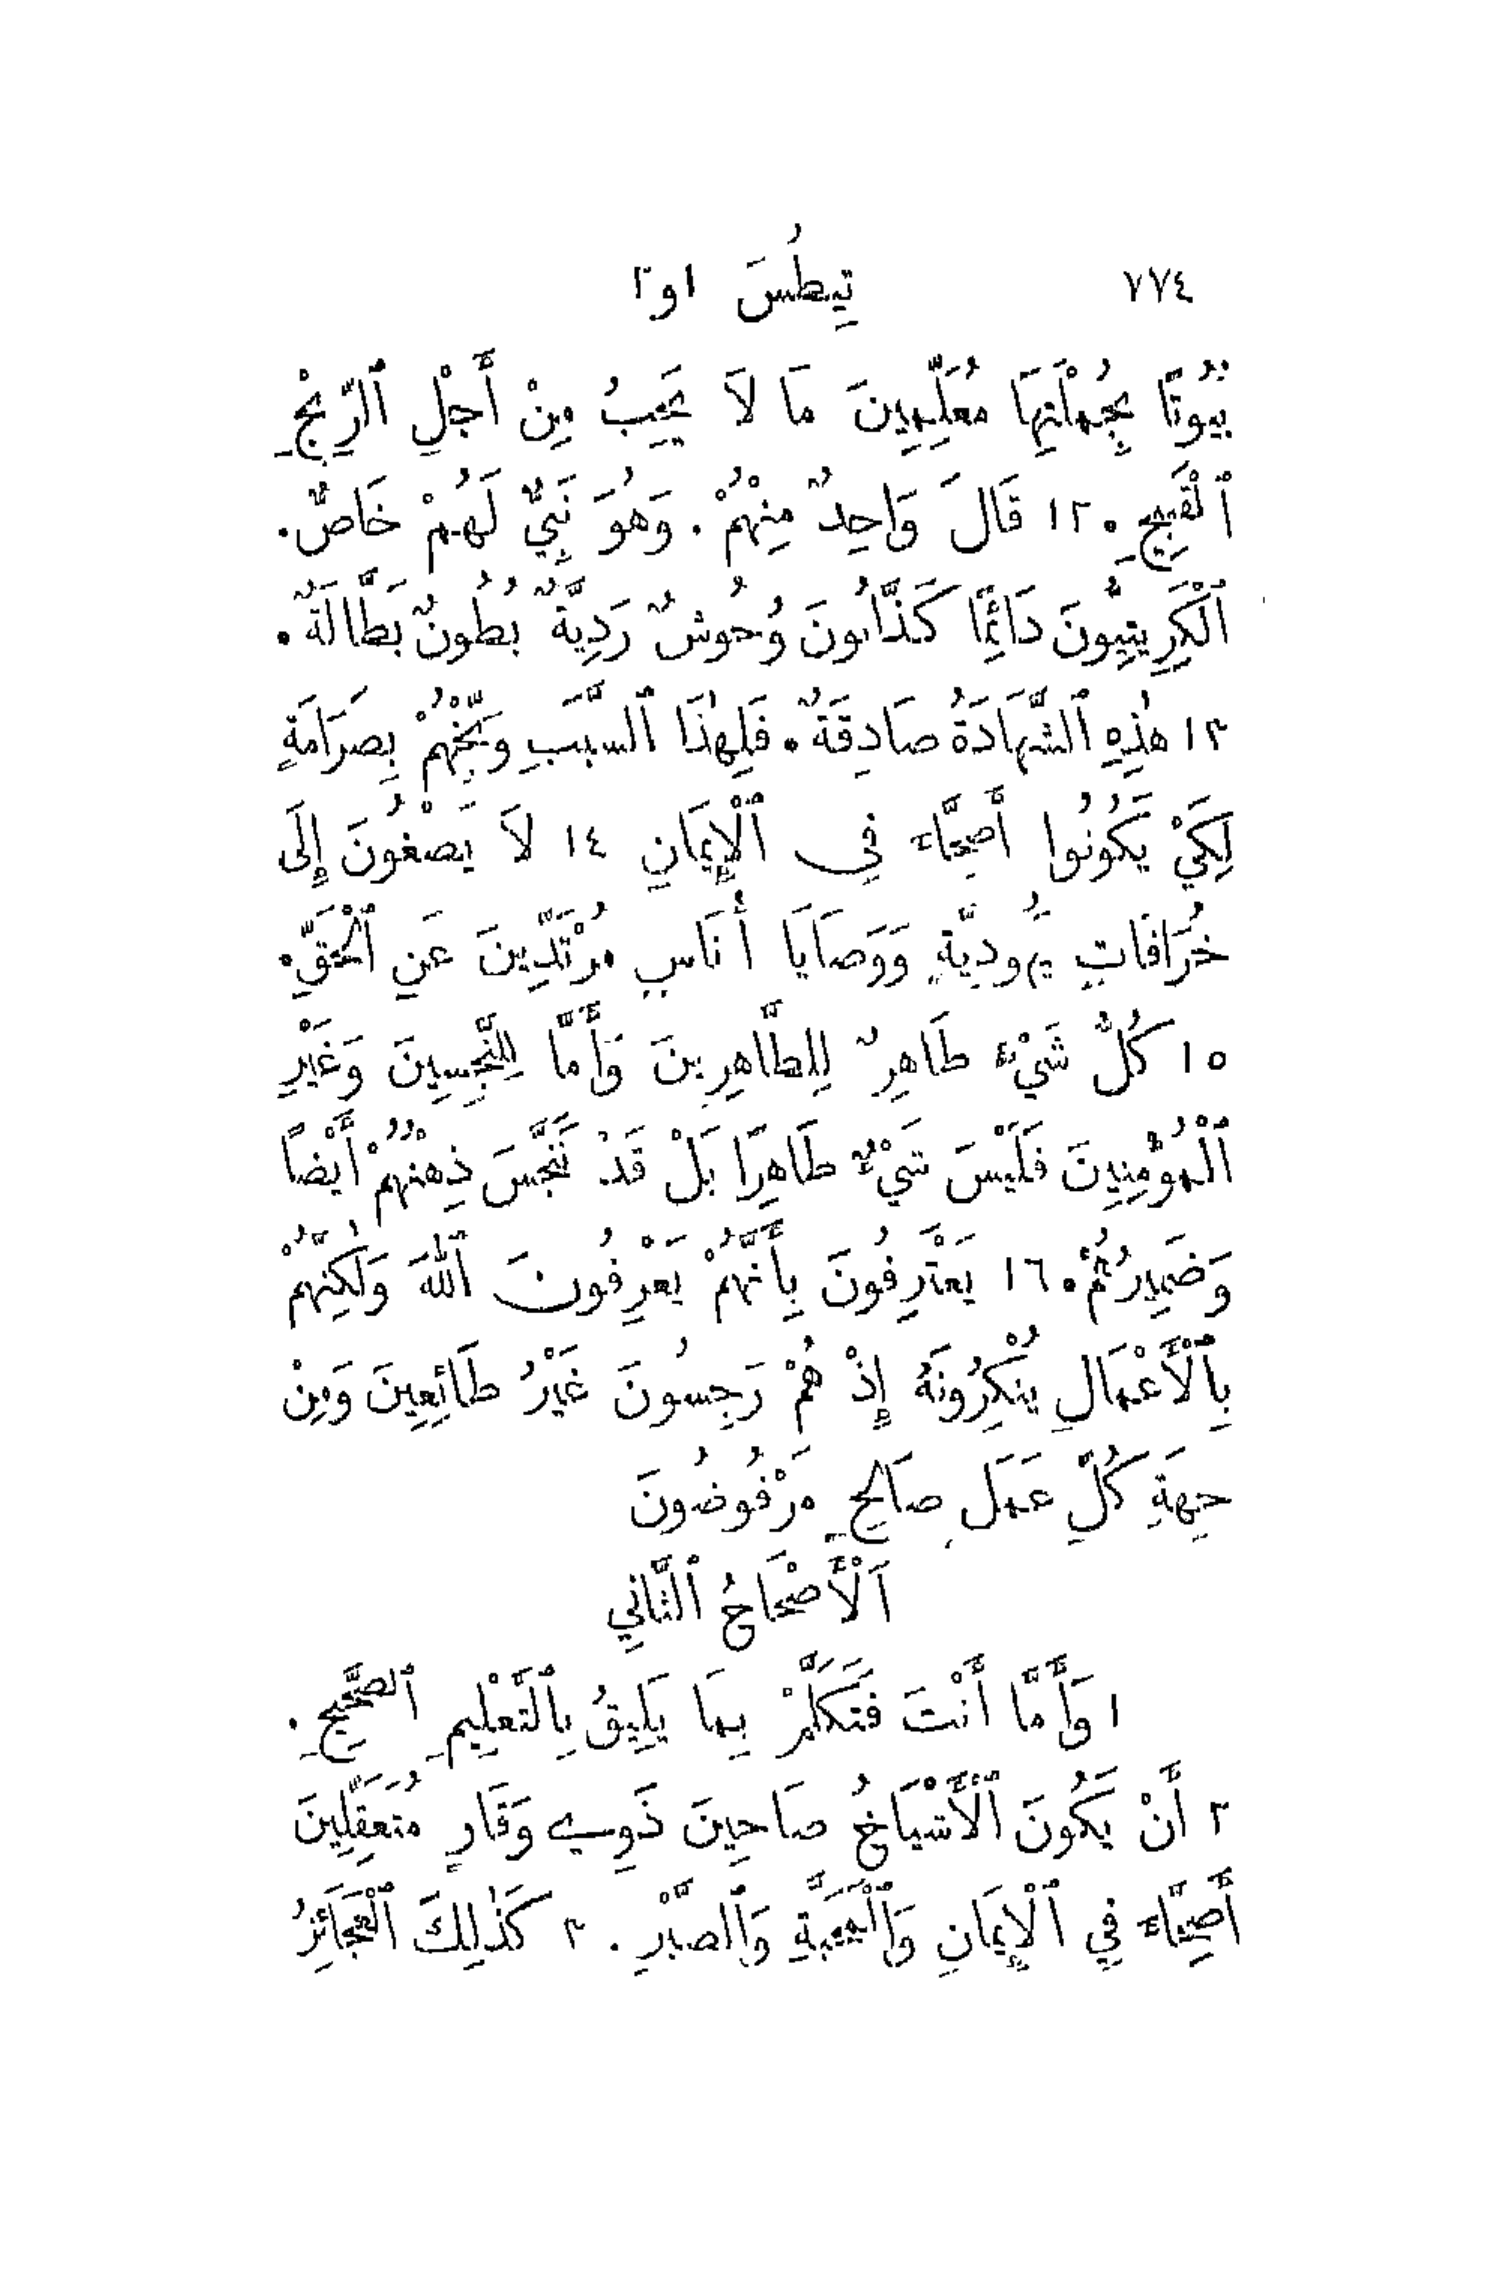 ٧٧٤ تِيطُسَ ١و٢
بُيُوتًا بِجُمْلَتِهَا مُعَلِّمِينَ مَا لَا يَجِبُ مِنْ أَجْلِ ٱلرِّبْحِ
ٱلْقَبِيحِ. ١٢ قَالَ وَاحِدٌ مِنْهُمْ. وَهُوَ نَبِيٌّ لَهُمْ خَاصٌّ.
ٱلْكَرِيتِيُّونَ دَائِمًا كَذَّابُونَ وُحُوشٌ رَدِيَّةٌ بُطُونٌ بَطَّالَةٌ.
١٣ هٰذِهِ ٱلشَّهَادَةُ صَادِقَةٌ. فَلِهٰذَا ٱلسَّبَبِ وَبِّخْهُمْ بِصَرَامَةٍ
لِكَيْ يَكُونُوا أَصِحَّاءَ فِي ٱلْإِيمَانِ ١٤ لَا يَصْغُونَ إِلَى
خُرَافَاتٍ يَهُودِيَّةٍ وَوَصَايَا أُنَاسٍ مُرْتَدِّينَ عَنِ ٱلْحَقِّ.
١٥ كُلُّ شَيْءٍ طَاهِرٌ لِلطَّاهِرِينَ وَأَمَّا لِلنَّجِسِينَ وَغَيْرِ
ٱلْمُؤْمِنِينَ فَلَيْسَ شَيْءٌ طَاهِرًا بَلْ قَدْ تَنَجَّسَ ذِهْنُهُمْ أَيْضًا
وَضَمِيرُهُمْ. ١٦ يَعْتَرِفُونَ بِأَنَّهُمْ يَعْرِفُونَ ٱللهَ وَلٰكِنَّهُمْ
بِٱلْأَعْمَالِ يُنْكِرُونَهُ إِذْ هُمْ رَجِسُونَ غَيْرُ طَائِعِينَ وَمِنْ
جِهَةِ كُلِّ عَمَلٍ صَالِحٍ مَرْفُوضُونَ
اَلْأَصْحَاحُ ٱلثَّانِي
١ وَأَمَّا أَنْتَ فَتَكَلَّمْ بِمَا يَلِيقُ بِٱلتَّعْلِيمِ ٱلصَّحِيحِ.
٢ أَنْ يَكُونَ ٱلْأَشْيَاخُ صَاحِينَ ذَوِي وَقَارٍ مُتَعَقِّلِينَ
أَصِحَّاءَ فِي ٱلْإِيمَانِ وَٱلْمَحَبَّةِ وَٱلصَّبْرِ. ٣ كَذٰلِكَ ٱلْعَجَائِزُ